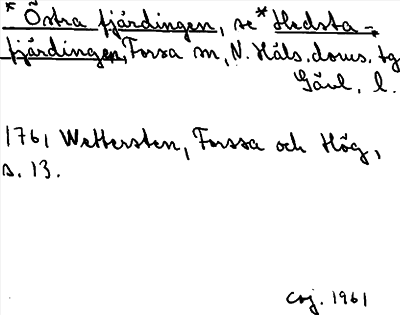 * Östra fjärdingen, se * Hedsta-
fjärdingen, Forsa sn, N. Häls. doms. tg
Gävl. l.
1761 Wettersten, Forssa och Hög,
s. 13.
Coj. 1961